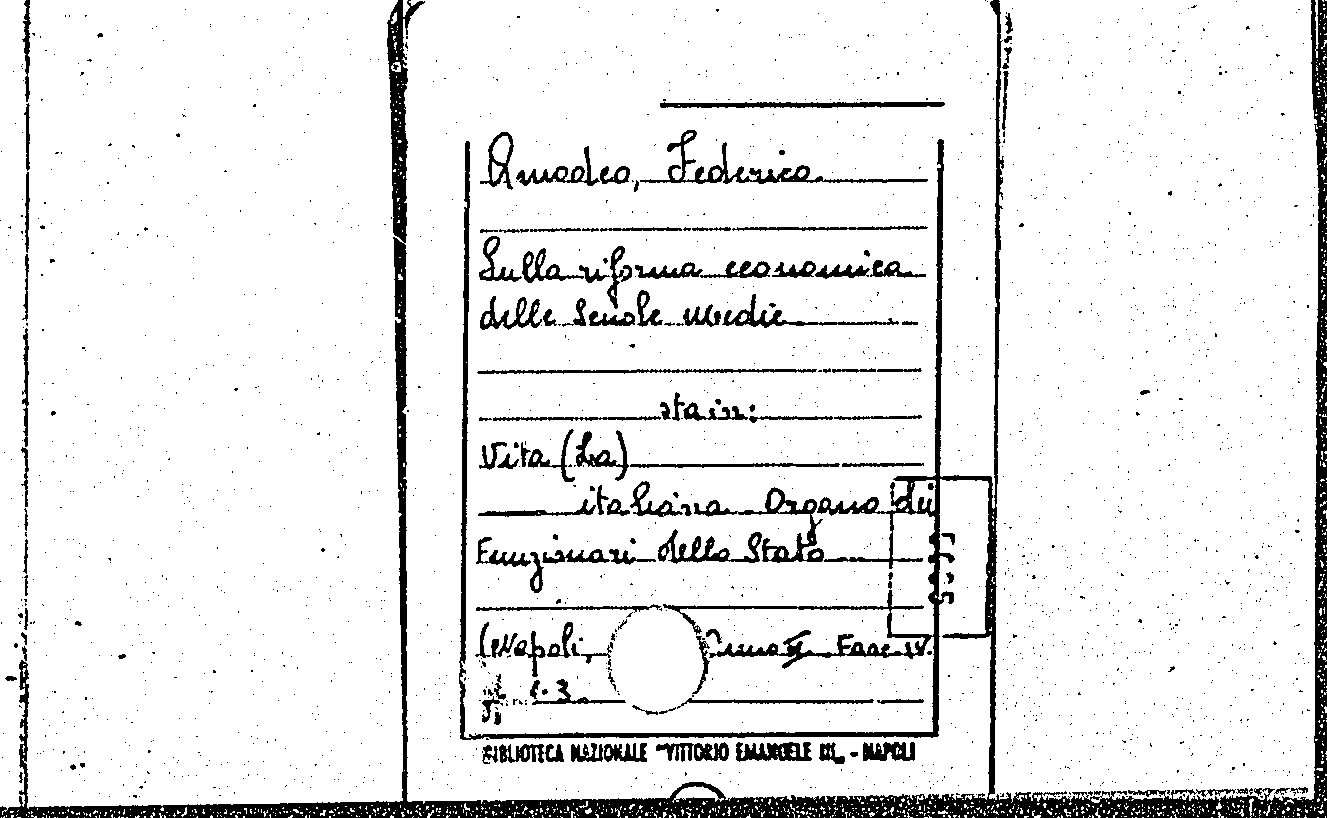 Amodeo, Federico.
Sulla riforma economica
delle Scuole Medie
sta in:
Vita (La)
—— italiana. Organo dei
Funzionari dello Stato
(Napoli, Anno II. Fasc. IV.
1-3.
BIBLIOTECA NAZIONALE "VITTORIO EMANUELE III„ - NAPOLI